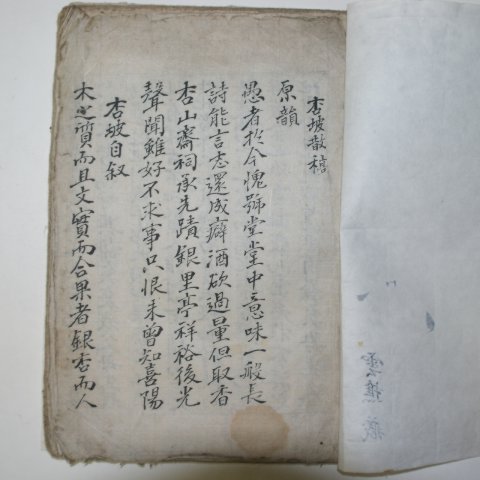 杏坡散稿
原韻
愚者於今愧號堂堂中意味一般長
詩能言志還成癖酒欲過量但取香
杏山齋祠承先蹟銀里亭祥裕後光
聲聞雖好不求事只恨未曾知喜陽
杏坡自叙
木之質而且文實而合果者銀杏而人
雲樵藏